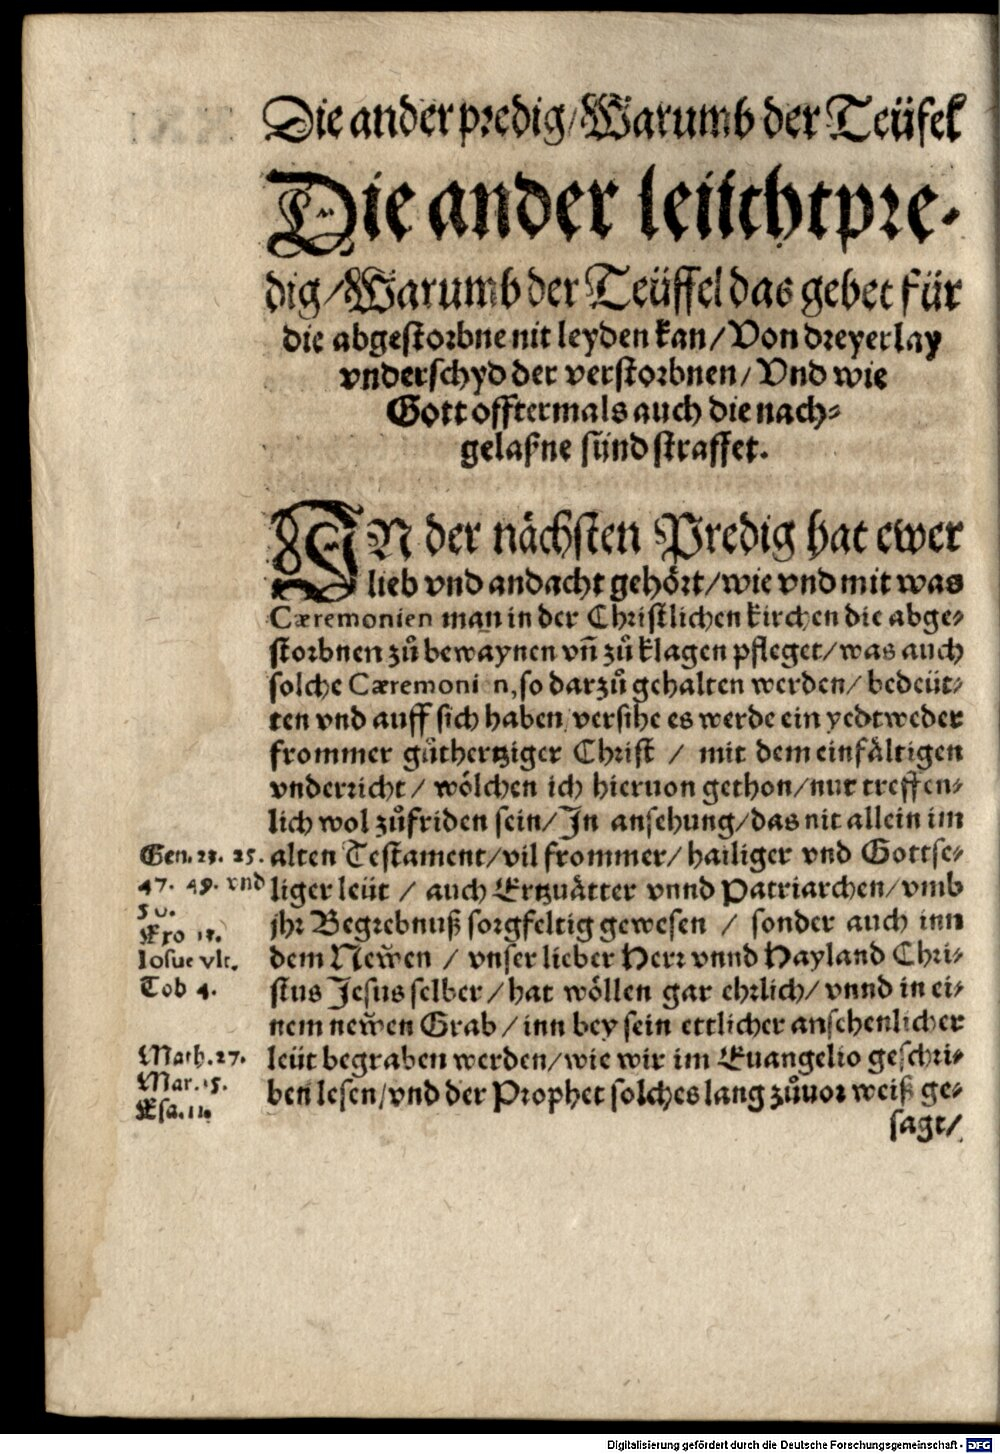 Die ander predig/ Warumb der Teüfel
Die ander leücht pre-
dig/ Warumb der Teüffel das gebet für
die abgestorbne nit leyden kan/ Von dreyerlay
vnderschyd der verstorbnen/ Vnd wie
Gott offtermals auch die nach-
gelaßne sünd straffet.
IN der nächsten Predig hat ewer
lieb vnd andacht gehört/ wie vnd mit was
Cæremonien man in der Christlichen kirchen die abge-
storbnen zů bewaynen vñ zů klagen pfleget/ was auch
solche Cæremoni n, so darzů gehalten werden/ bedeüt-
ten vnd auff sich haben/ versihe es werde ein yedtweder
frommer gůthertziger Christ / mit dem einfältigen
vnderricht / wölchen ich hieruon gethon/ nur treffen-
lich wol zůfriden sein/ In ansehung/ das nit allein im
Gen. 23. 25. alten Testament/ vil frommer/ hailiger vnd Gottse-
47. 49. vnd liger leüt / auch Ertzuätter vnnd Patriarchen/ vmb
50. jhr Begrebnuß sorgfeltig gewesen / sonder auch inn
Exo 13.
Iosue vlt. dem Newen / vnser lieber Herr vnnd Hayland Chri-
Tob 4. stus Jesus selber/ hat wöllen gar ehrlich/ vnnd in ei-
nem newen Grab / inn bey sein ettlicher ansehenlicher
Math. 27. leüt begraben werden/ wie wir im Euangelio geschri-
Mar. 15. ben lesen/ vnd der Prophet solches lang zůuor weiß ge-
Esa. 11.
sagt/
Digitalisierung gefördert durch die Deutsche Forschungsgemeinschaft - DFG